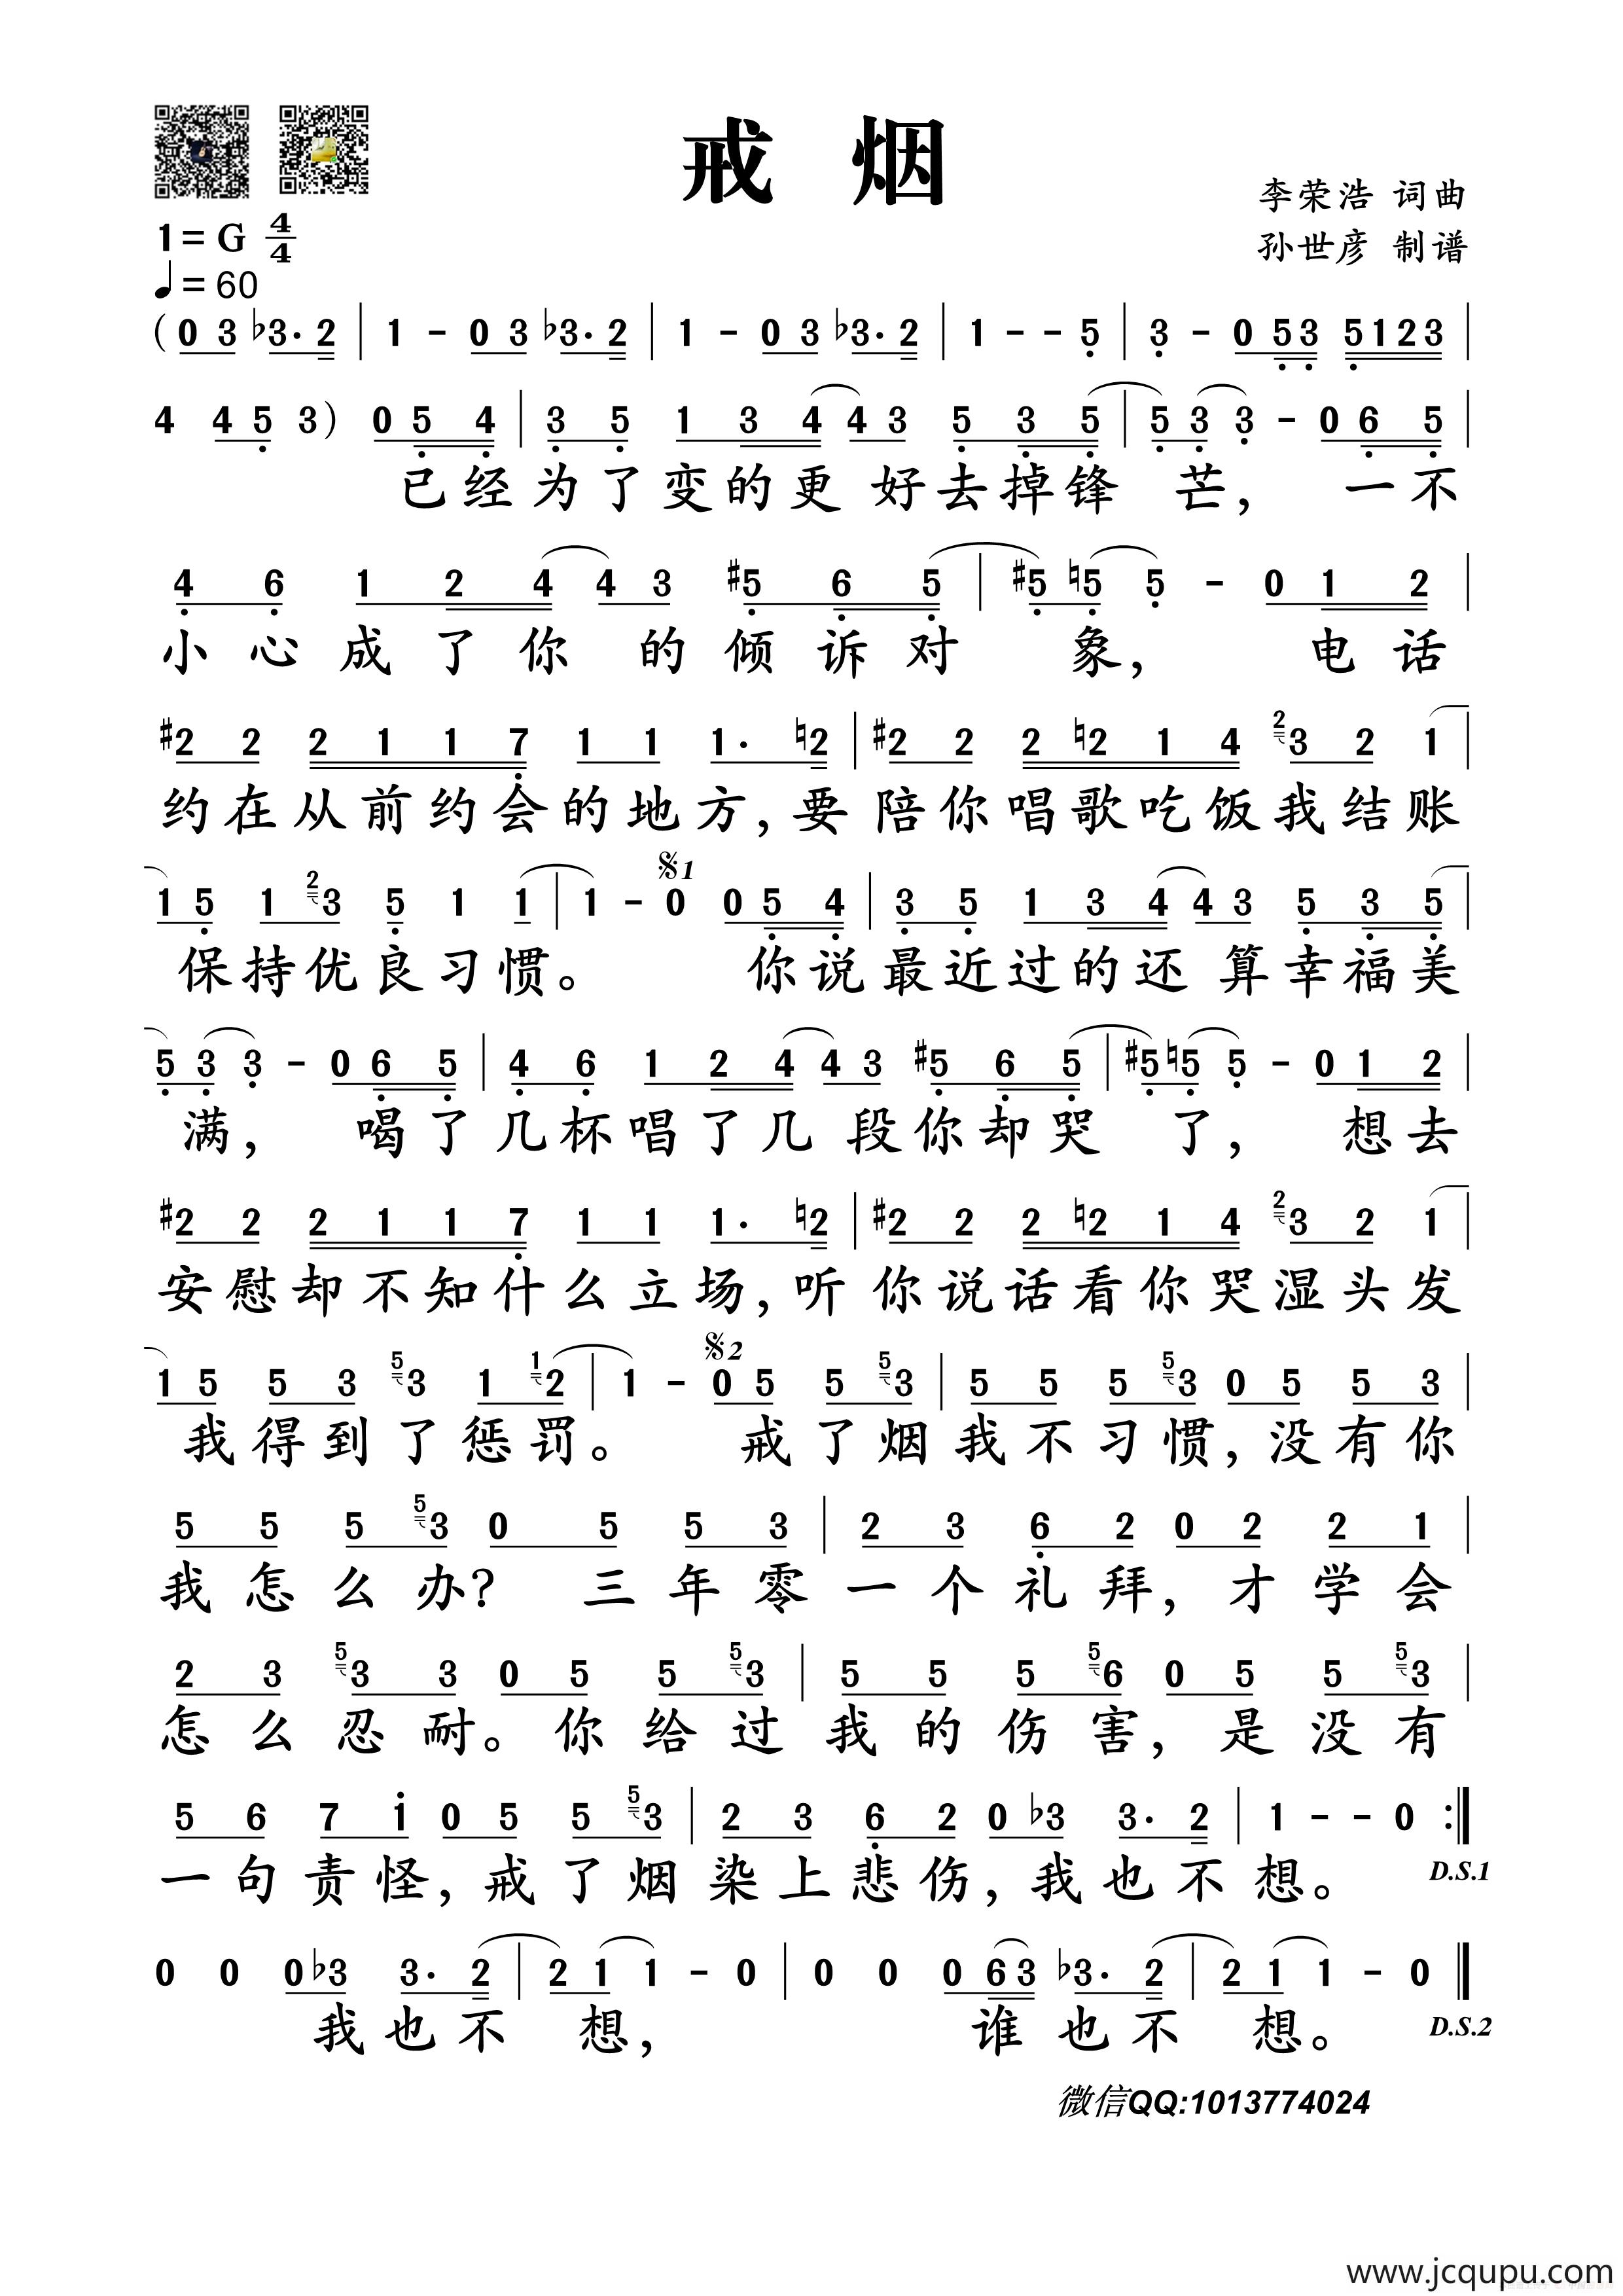 戒 烟
李荣浩 词曲
孙世彦 制谱
1=G 4/4
♩=60
(0 3 ♭3· 2 | 1 - 0 3 ♭3· 2 | 1 - 0 3 ♭3· 2 | 1 - - 5 | 3 - 0 5 3 5 1 2 3 |
4 4 5 3) 0 5 4 | 3 5 1 3 4 4 3 5 3 5 | 5 3 3 - 0 6 5 |
已经为了变的更 好去掉锋 芒, 一不
4 6 1 2 4 4 3 #5 6 5 | #5 ♮5 5 - 0 1 2 |
小心成了你 的倾诉对 象, 电话
#2 2 2 1 1 7 1 1 1· ♮2 | #2 2 2 ♮2 1 4 2 3 2 1 |
约在从前约会的地方,要 陪你唱歌吃饭我结账
1 5 1 2 3 5 1 1 | 1 - 𝄋1 0 0 5 4 | 3 5 1 3 4 4 3 5 3 5 |
保持优良习惯。 你说最近过的还 算幸福美
5 3 3 - 0 6 5 | 4 6 1 2 4 4 3 #5 6 5 | #5 ♮5 5 - 0 1 2 |
满, 喝了几杯唱了几 段你却哭 了, 想去
#2 2 2 1 1 7 1 1 1· ♮2 | #2 2 2 ♮2 1 4 2 3 2 1 |
安慰却不知什么立场,听 你说话看你哭湿头发
1 5 5 3 5 3 1 1 2 | 1 - 𝄋2 0 5 5 5 3 | 5 5 5 5 3 0 5 5 3 |
我得到了惩罚。 戒了烟我不习惯,没有你
5 5 5 5 3 0 5 5 3 | 2 3 6 2 0 2 2 1 |
我怎么办? 三年零一个礼拜,才学会
2 3 5 3 3 0 5 5 5 3 | 5 5 5 5 6 0 5 5 5 3 |
怎么忍耐。你给过我的伤害,是没有
5 6 7 1 0 5 5 5 3 | 2 3 6 2 0 ♭3 3· 2 | 1 - - 0 :‖
一句责怪,戒了烟染上悲伤,我也不想。 D.S.1
0 0 0 ♭3 3· 2 | 2 1 1 - 0 | 0 0 0 6 3 ♭3· 2 | 2 1 1 - 0 ‖
我也不 想, 谁也不 想。 D.S.2
微信QQ:1013774024
www.jcqupu.com